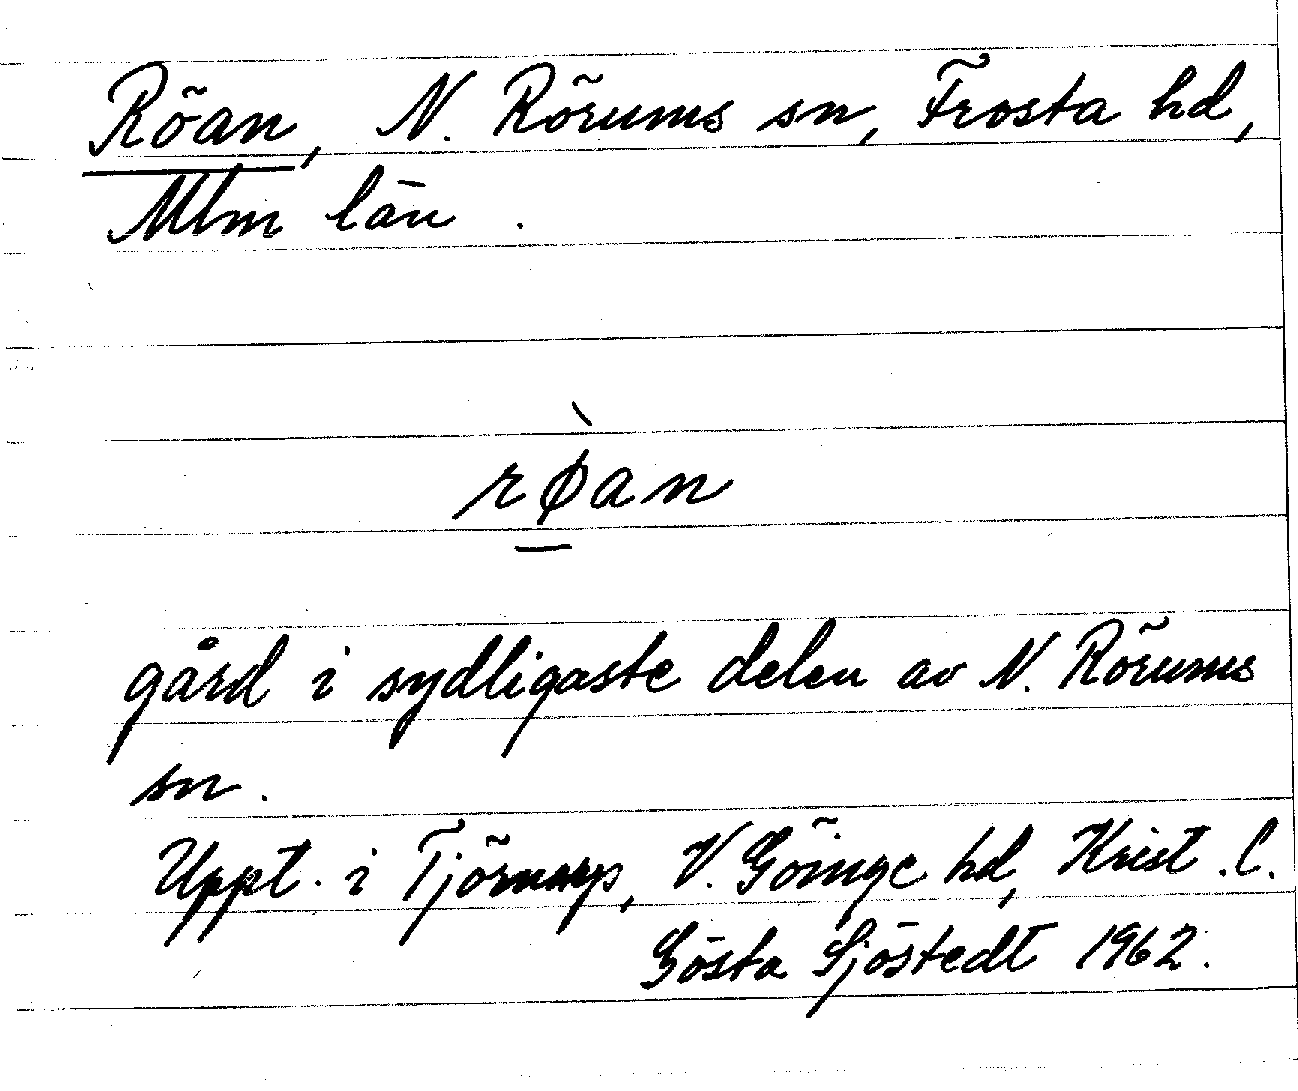 Röan, N. Rörums sn, Frosta hd,
Mlm län.
rø̱̀an
gård i sydligaste delen av N. Rörums
sn.
Uppt. i Tjörnarp, V. Göinge hd, Krist. l.
Gösta Sjöstedt 1962.